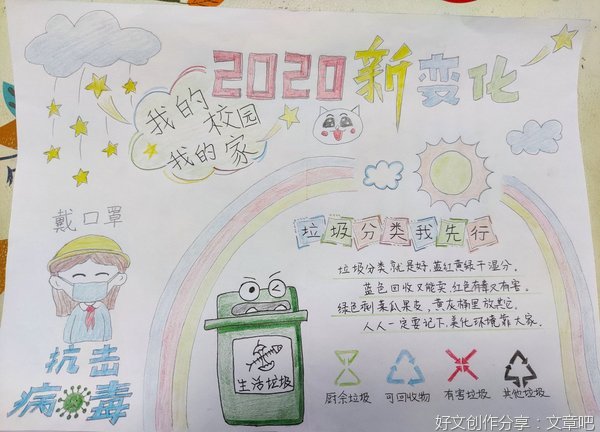 2020新变化
我的校园
我的家
戴口罩
垃圾分类我先行
垃圾分类就是好,蓝红黄绿干湿分.
蓝色回收又能卖,红色有毒又有害.
绿色剩菜瓜果皮,黄灰桶里放其它.
人人一定要记下,美化环境靠大家.
生活垃圾
厨余垃圾
可回收物
有害垃圾
其他垃圾
抗击
病毒
好文创作分享：文章吧